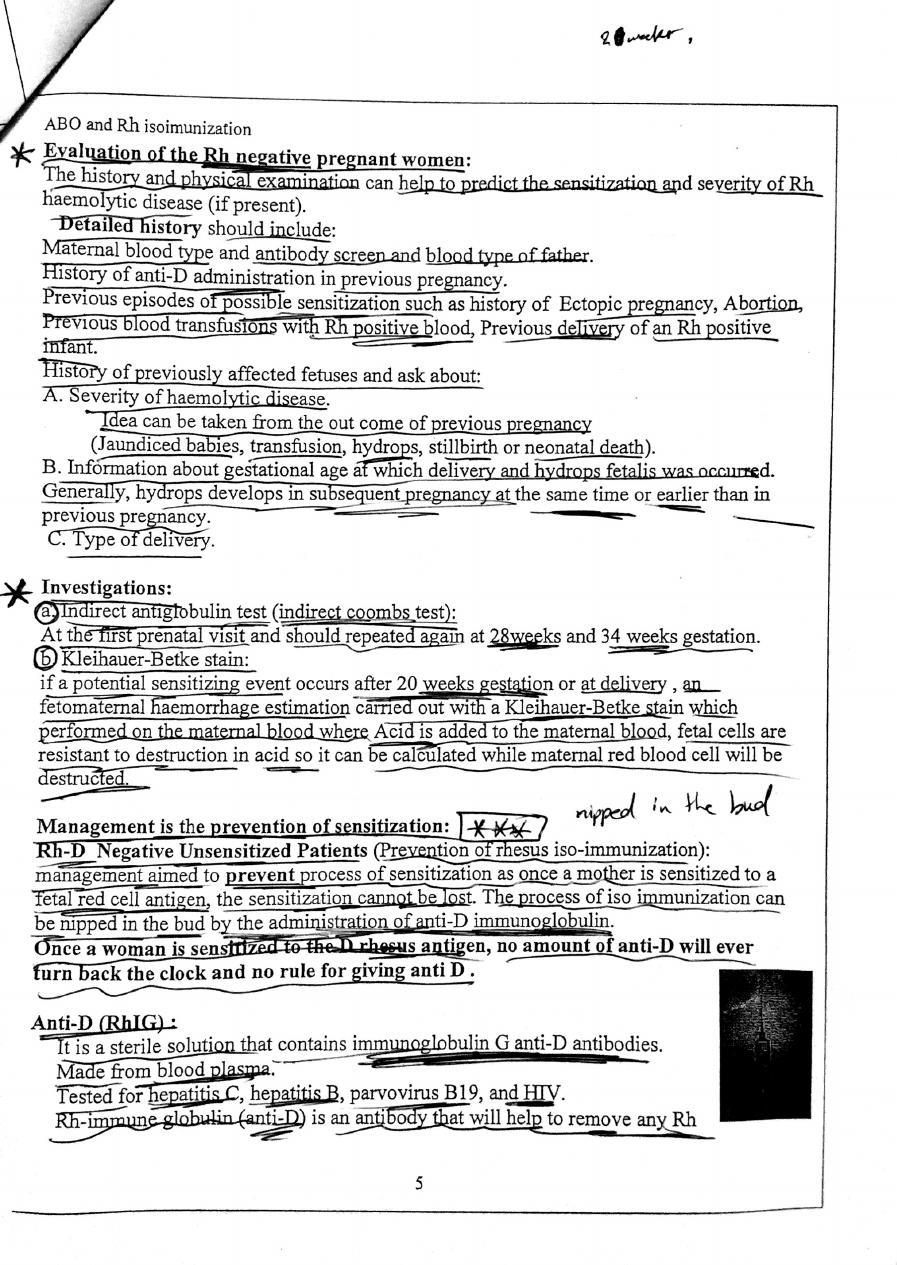 weeks,
ABO and Rh isoimunization
Evaluation of the Rh negative pregnant women:
The history and physical examination can help to predict the sensitization and severity of Rh
haemolytic disease (if present).
Detailed history should include:
Maternal blood type and antibody screen and blood type of father.
History of anti-D administration in previous pregnancy.
Previous episodes of possible sensitization such as history of Ectopic pregnancy, Abortion,
Previous blood transfusions with Rh positive blood, Previous delivery of an Rh positive
infant.
History of previously affected fetuses and ask about:
A. Severity of haemolytic disease.
Idea can be taken from the out come of previous pregnancy
(Jaundiced babies, transfusion, hydrops, stillbirth or neonatal death).
B. Information about gestational age at which delivery and hydrops fetalis was occurred.
Generally, hydrops develops in subsequent pregnancy at the same time or earlier than in
previous pregnancy.
C. Type of delivery.
Investigations:
a. Indirect antiglobulin test (indirect coombs test):
At the first prenatal visit and should repeated again at 28weeks and 34 weeks gestation.
b) Kleihauer-Betke stain:
if a potential sensitizing event occurs after 20 weeks gestation or at delivery , an
fetomaternal haemorrhage estimation carried out with a Kleihauer-Betke stain which
performed on the maternal blood where Acid is added to the maternal blood, fetal cells are
resistant to destruction in acid so it can be calculated while maternal red blood cell will be
destructed.
nipped in the bud
Management is the prevention of sensitization:
Rh-D Negative Unsensitized Patients (Prevention of rhesus iso-immunization):
management aimed to prevent process of sensitization as once a mother is sensitized to a
fetal red cell antigen, the sensitization cannot be lost. The process of iso immunization can
be nipped in the bud by the administration of anti-D immunoglobulin.
Once a woman is sensitized to the D rhesus antigen, no amount of anti-D will ever
turn back the clock and no rule for giving anti D .
Anti-D (RhIG) :
It is a sterile solution that contains immunoglobulin G anti-D antibodies.
Made from blood plasma.
Tested for hepatitis C, hepatitis B, parvovirus B19, and HIV.
Rh-immune globulin (anti-D) is an antibody that will help to remove any Rh
5